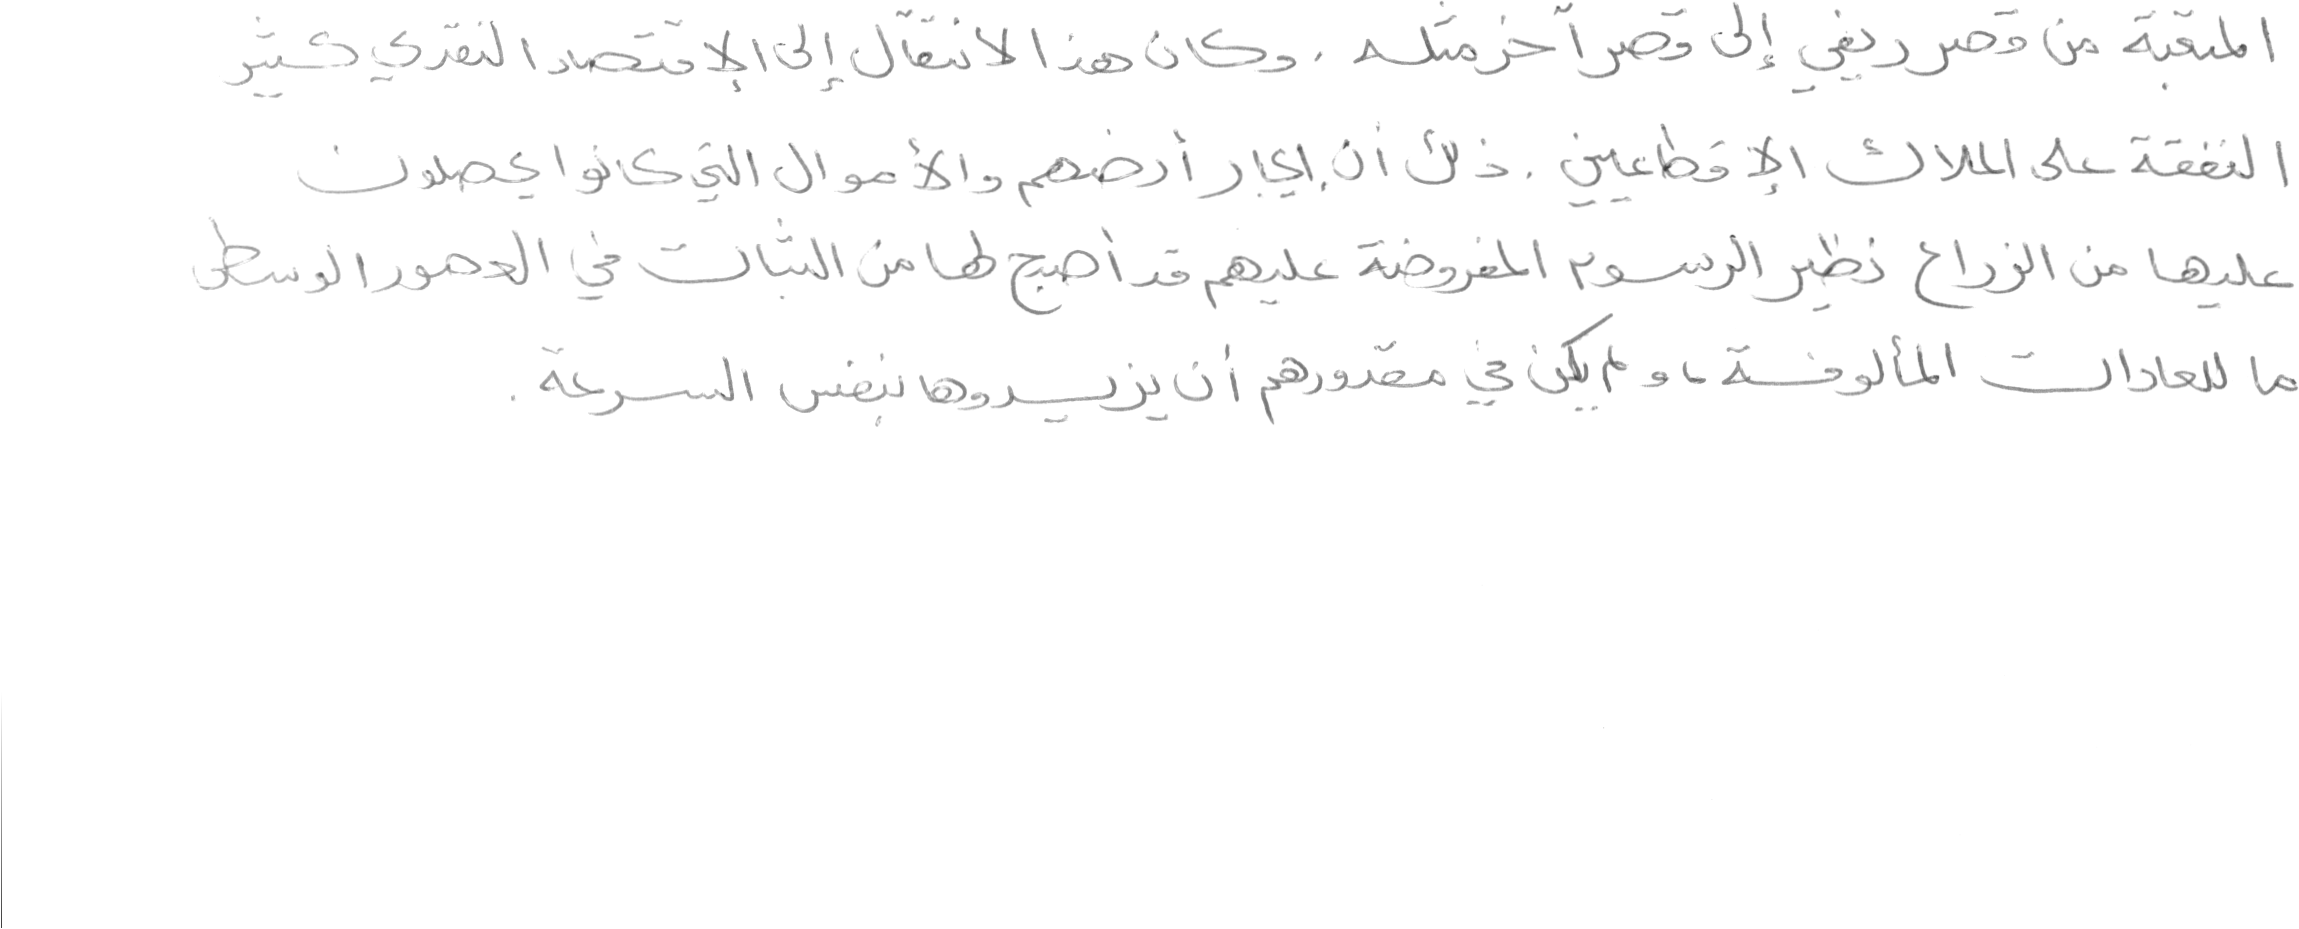 المتعبة من قصر ريفي إلى قصر آخر مثله . وكان هذا الانتقال إلى الإقتصاد النقدي كثير
النفقة على الملاك الإقطاعيين . ذلك أن إيجار أرضهم والأموال التي كانوا يحصلون
عليها من الزراع نظير الرسوم المفروضة عليهم قد أصبح لها من الثبات في العصور الوسطى
ما للعادات المألوفة ، و لم يكن في مقدورهم أن يزيدوها بنفس السرعة .